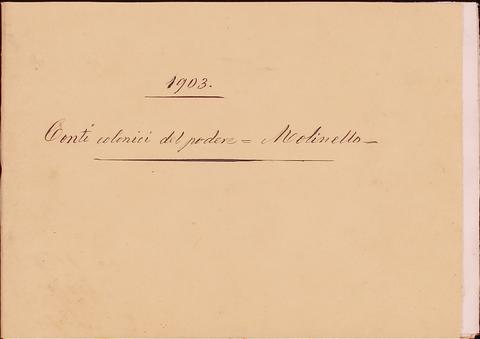 1903.
Conti colonici del podere = Molinello —